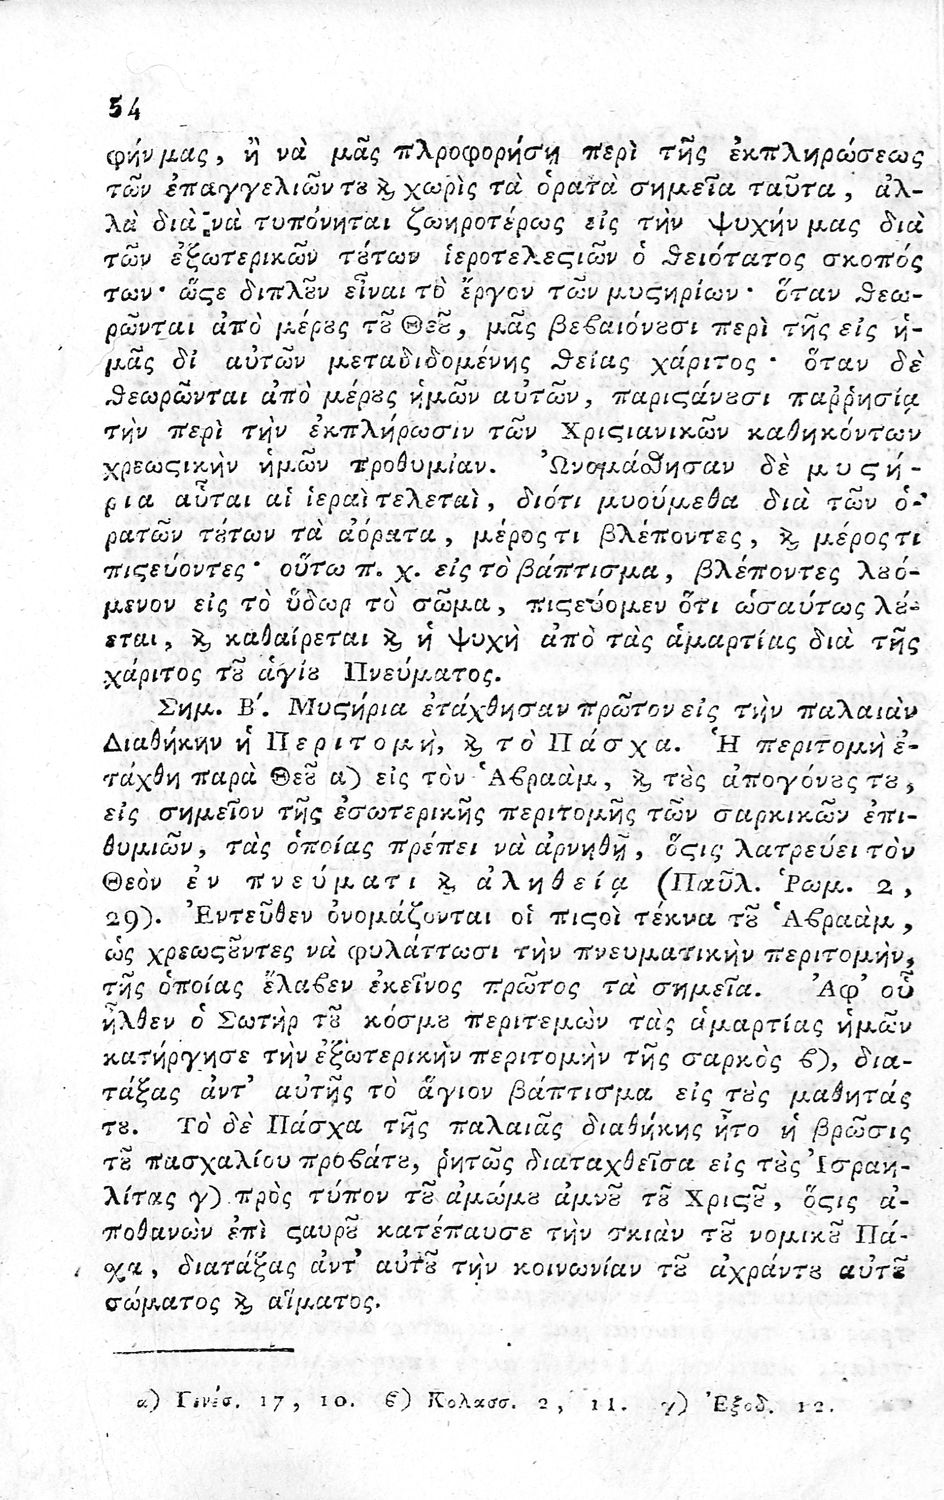 54
φήν μας, ἢ νὰ μᾶς πλροφορήσῃ περὶ τῆς ἐκπληρώσεως
τῶν ἐπαγγελιῶν τȣ ϗ χωρὶς τὰ ὁρατὰ σημεῖα ταῦτα, ἀλ-
λὰ διὰ νὰ τυπόνηται ζωηροτέρως εἰς τὴν ψυχήν μας διὰ
τῶν ἐξωτερικῶν τȣ́των ἱεροτελεϛιῶν ὁ θειότατος σκοπός
των· ὥϛε διπλȣ͂ν εἶναι τὸ ἔργον τῶν μυϛηρίων· ὅταν θεω-
ρῶνται ἀπὸ μέρȣς τȣ͂ Θεȣ͂, μᾶς βεβαιόνȣσι περὶ τῆς εἰς ἡ-
μᾶς δἰ αὐτῶν μεταδιδομένης θείας χάριτος· ὅταν δὲ
θεωρῶνται ἀπὸ μέρȣς ἡμῶν αὐτῶν, παριϛάνȣσι παῤῥησίᾳ
τὴν περὶ τὴν ἐκπλήρωσιν τῶν Χριϛιανικῶν καθηκόντων
χρεωϛικὴν ἡμῶν προθυμίαν. Ὠνομάσθησαν δὲ μυϛή-
ρια αὗται αἱ ἱεραὶ τελεταὶ, διότι μυούμεθα διὰ τῶν ὁ-
ρατῶν τȣ́των τὰ ἀόρατα, μέρος τι βλέποντες, ϗ μέρος τι
πιϛεύοντες· οὕτω π. χ. εἰς τὸ βάπτισμα, βλέποντες λȣό-
μενον εἰς τὸ ὕδωρ τὸ σῶμα, πιϛεύομεν ὅτι ὡσαύτως λȣ́-
εται, ϗ καθαίρεται ϗ ἡ ψυχὴ ἀπὸ τὰς ἁμαρτίας διὰ τῆς
χάριτος τȣ͂ ἁγίȣ Πνεύματος.
Σημ. Β΄. Μυϛήρια ἐτάχθησαν πρῶτον εἰς τὴν παλαιὰν
Διαθήκην ἡ Περιτομὴ, ϗ τὸ Πάσχα. Ἡ περιτομὴ ἐ-
τάχθη παρὰ Θεȣ͂ α) εἰς τὸν Ἁβραὰμ, ϗ τȣ̀ς ἀπογόνȣς τȣ,
εἰς σημεῖον τῆς ἐσωτερικῆς περιτομῆς τῶν σαρκικῶν ἐπι-
θυμιῶν, τὰς ὁποίας πρέπει νὰ ἀρνηθῇ, ὅϛις λατρεύει τὸν
Θεὸν ἐν πνεύματι ϗ ἀληθείᾳ (Παῦλ. Ῥωμ. 2,
29). Ἐντεῦθεν ὀνομάζονται οἱ πιϛοὶ τέκνα τȣ͂ Ἁβραὰμ,
ὡς χρεωϛȣ͂ντες νὰ φυλάττωσι τὴν πνευματικὴν περιτομὴν,
τῆς ὁποίας ἔλαβεν ἐκεῖνος πρῶτος τὰ σημεῖα. Ἀφ’ οὗ
ἦλθεν ὁ Σωτὴρ τȣ͂ κόσμȣ περιτεμὼν τὰς ἁμαρτίας ἡμῶν
κατήργησε τὴν ἐξωτερικὴν περιτομὴν τῆς σαρκὸς β), δια-
τάξας ἀντ’ αὐτῆς τὸ ἅγιον βάπτισμα εἰς τȣ̀ς μαθητάς
τȣ. Τὸ δὲ Πάσχα τῆς παλαιᾶς διαθήκης ἦτο ἡ βρῶσις
τȣ͂ πασχαλίου προβάτȣ, ῥητῶς διαταχθεῖσα εἰς τȣ̀ς Ἰσραη-
λίτας γ) πρὸς τύπον τȣ͂ ἀμώμȣ ἀμνȣ͂ τȣ͂ Χριϛȣ͂, ὅϛις ἀ-
ποθανὼν ἐπὶ ϛαυρȣ͂ κατέπαυσε τὴν σκιὰν τȣ͂ νομικȣ͂ Πά-
χα, διατάξας ἀντ’ αὐτȣ͂ τὴν κοινωνίαν τȣ͂ ἀχράντȣ αὐτȣ͂
σώματος ϗ αἵματος.
α) Γενέσ. 17, 10. β) Κολασσ. 2, 11. γ) Ἐξοδ. 12.